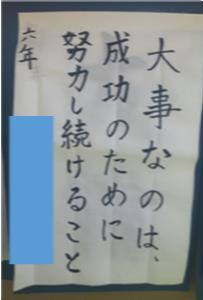 大事なのは、
成功のために
努力し続けること
六年